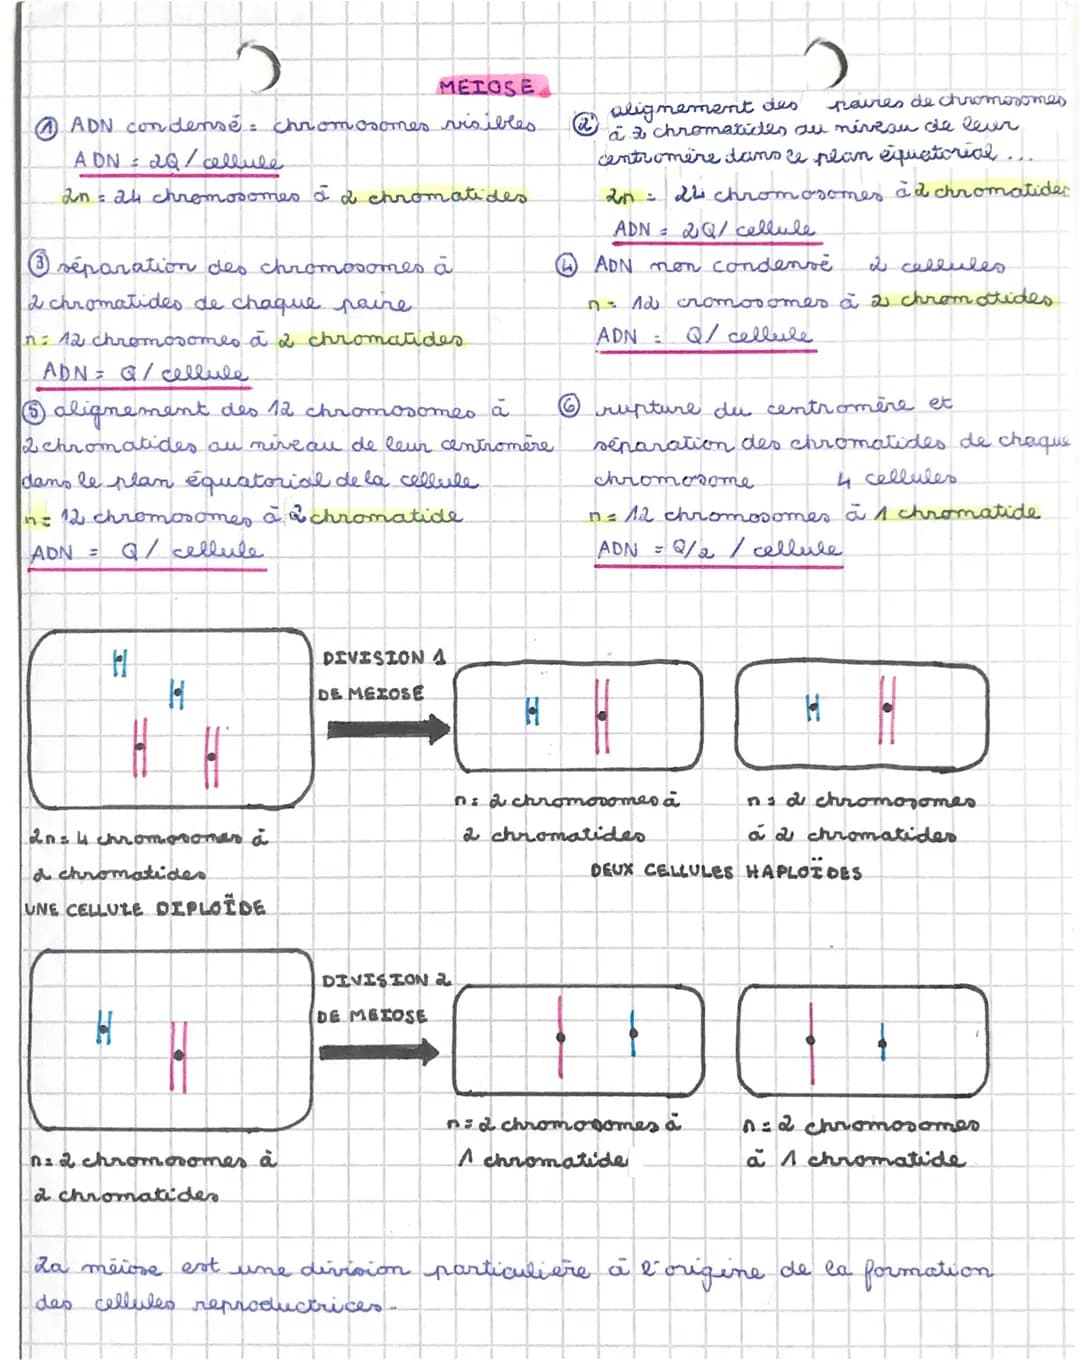 MEIOSE
① ADN condensé = chromosomes visibles
ADN = 2Q / cellule
2n = 24 chromosomes à 2 chromatides
② alignement des paires de chromosomes
à 2 chromatides au niveau de leur
centromère dans le plan équatorial ...
2n = 24 chromosomes à 2 chromatides
ADN = 2Q / cellule
③ séparation des chromosomes à
2 chromatides de chaque paire
n = 12 chromosomes à 2 chromatides
ADN = Q / cellule
④ ADN non condensé 2 cellules
n = 12 cromosomes à 2 chromatides
ADN = Q / cellule
⑤ alignement des 12 chromosomes à
2 chromatides au niveau de leur centromère
dans le plan équatorial de la cellule
n = 12 chromosomes à 2 chromatide
ADN = Q / cellule
⑥ rupture du centromère et
séparation des chromatides de chaque
chromosome 4 cellules
n = 12 chromosomes à 1 chromatide
ADN = Q/2 / cellule
DIVISION 1
DE MEIOSE
2n = 4 chromosomes à
2 chromatides
UNE CELLULE DIPLOÏDE
n = 2 chromosomes à
2 chromatides
n = 2 chromosomes
à 2 chromatides
DEUX CELLULES HAPLOÏDES
DIVISION 2
DE MEIOSE
n = 2 chromosomes à
2 chromatides
n = 2 chromosomes à
1 chromatide
n = 2 chromosomes
à 1 chromatide
La méiose est une division particulière à l'origine de la formation
des cellules reproductrices.